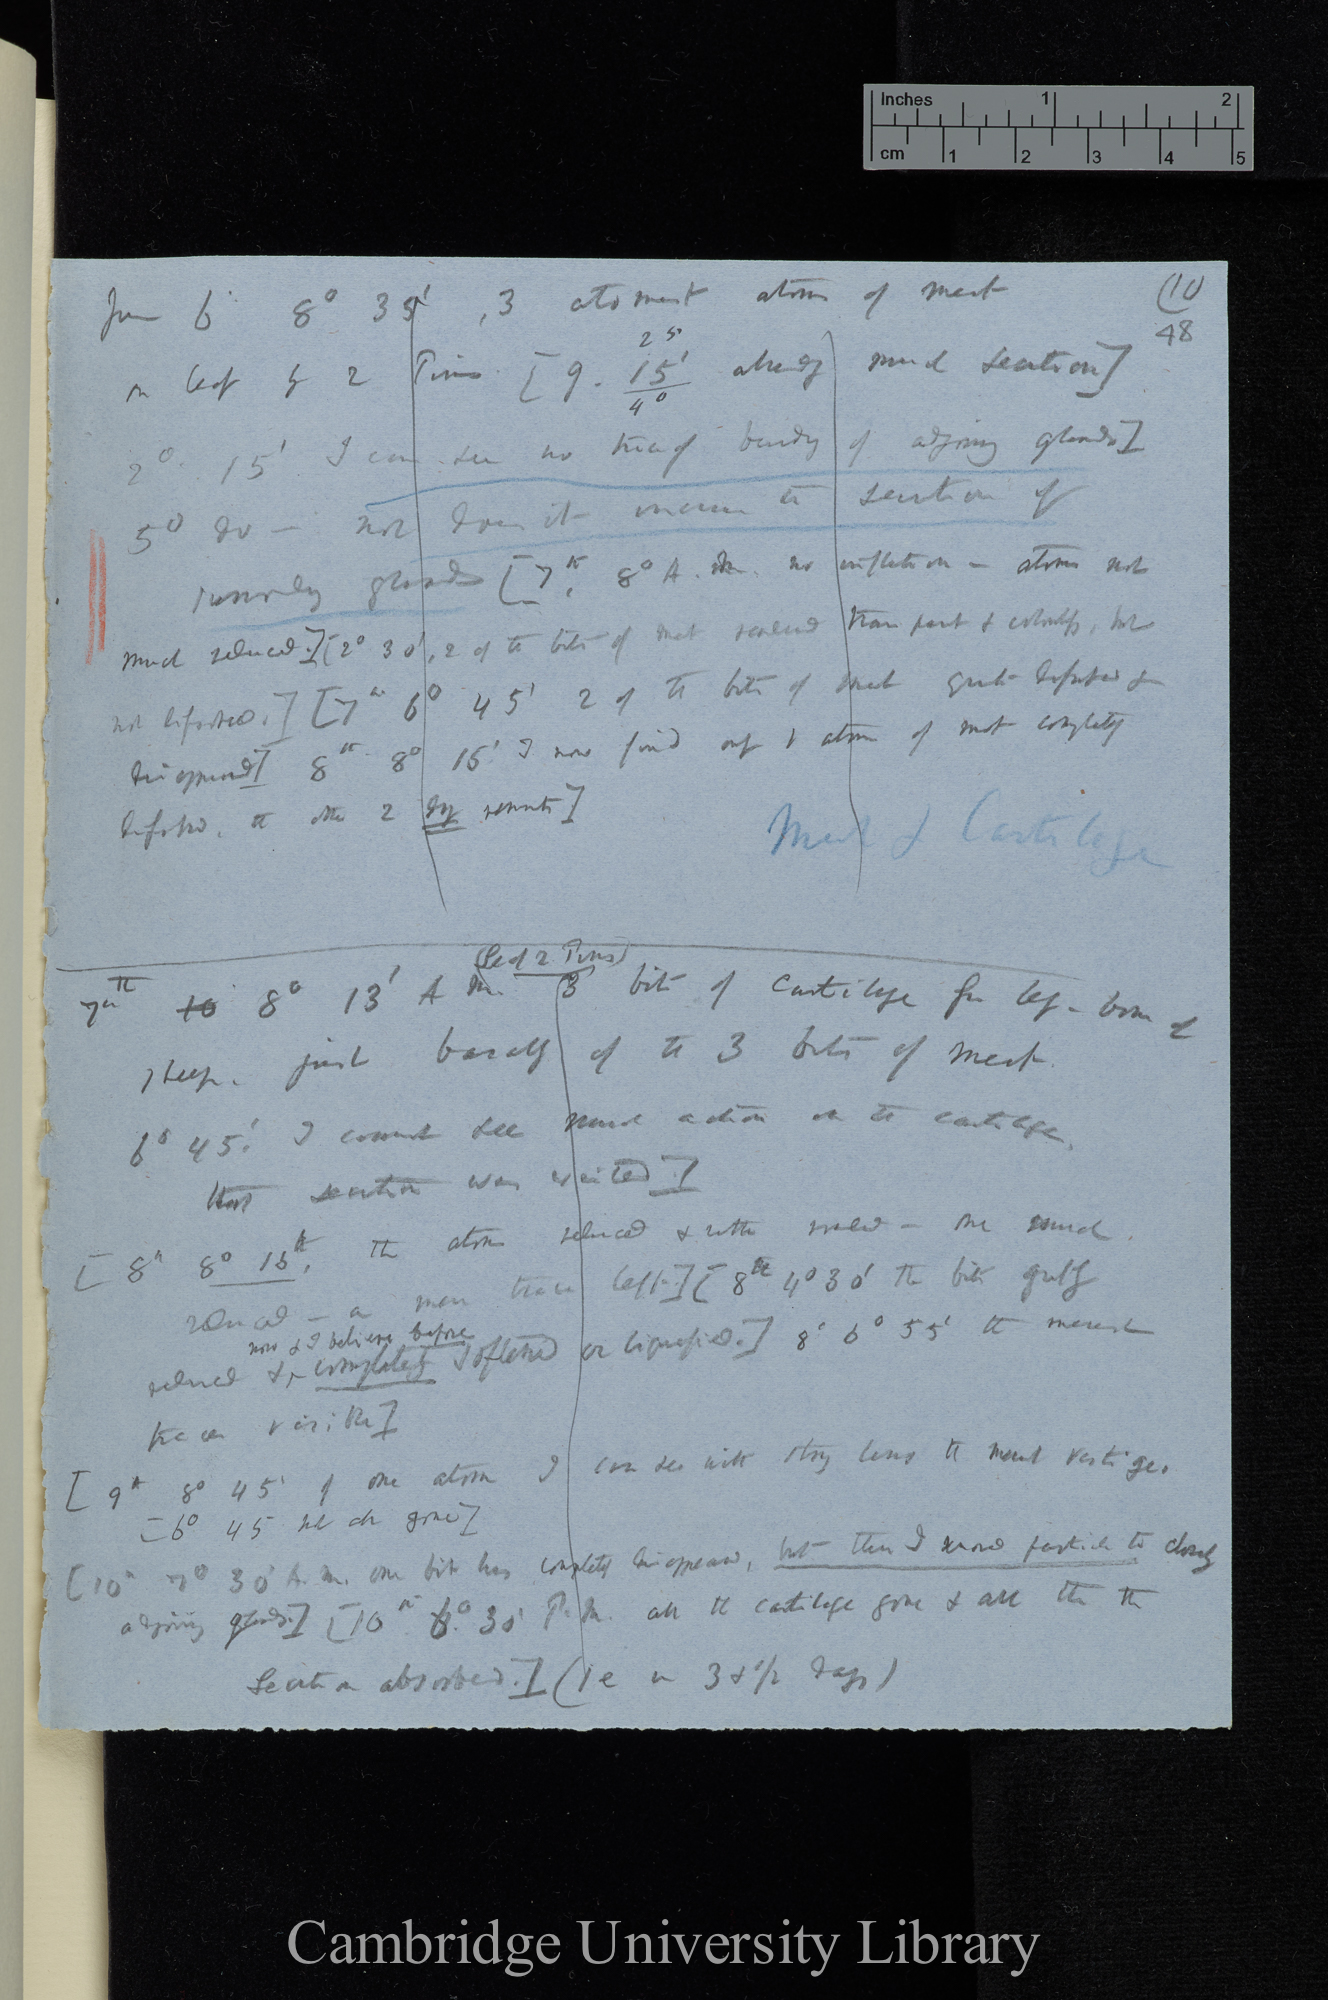 Inches 1 2
cm 1 2 3 4 5
(10
48
June 6 8° 35', 3 atoms of meat
on leaf by 2 Pins [9. 15' already much secretion]
25
4°
2° 15' I can see no of adjoining glands]
5° do — nor does it increase the secretion of
surrounding glands [7th 8° A.M. no inflection — atoms not
much reduced.] [2° 30', 2 of the bits of meat rendered transparent & colourless, but
not liquefied.] [7th 6° 45' 2 of the bits of meat
disappeared] 8th 8° 15' I now find only 1 atom of meat completely
the other 2 dry remnants]
Meat & Cartilage
(Leaf 2 Pins)
7th 8° 13' A.M. 3 bits of Cartilage from leg-bone of
sheep. just of the 3 bits of meat.
6° 45' I cannot see much action on the cartilage,
that secretion was excited.]
[8th 8° 15', the atoms reduced & rather — one much
reduced — a mere trace left.] [8th 4° 30' the bits greatly
now & I believe before
reduced & completely softened or liquefied.] 8' 6° 55' the merest
traces visible]
[9th 8° 45' of one atom I can see with strong lens the merest vestige.
6° 45 not all gone]
[10th 7° 30' A.M. one bit has completely disappeared, but then I moved particle to closely
adjoining glands.] [10th 6° 30' P.M. all the cartilage gone & all the
Secretion absorbed.] (ie in 3 & 1/2 days)
Cambridge University Library